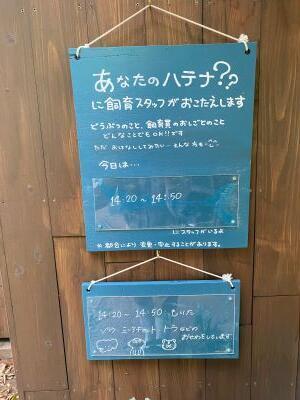 あなたのハテナ??
に飼育スタッフがおこたえします
どうぶつのこと、飼育員のおしごとのこと
どんなことでもOK!!です
ただ おはなししてみたい… そんな方も
今日は…
14:20 ~ 14:50
にスタッフがいるよ
※都合により 変更・中止することがあります。
14:20 ~ 14:50
ゾウ ミーアキャット トラなどの
おせわをしています